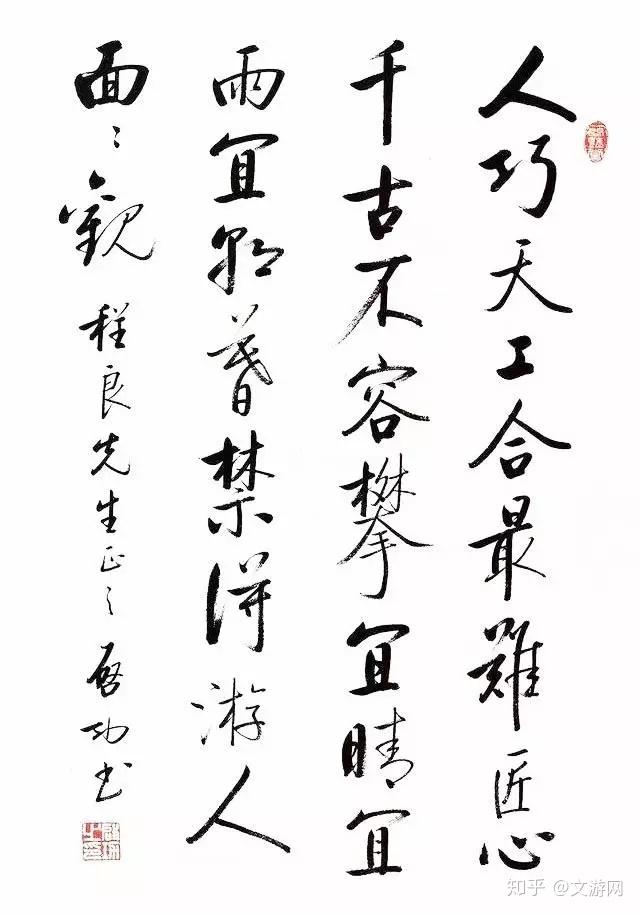 人巧天工合最難匠心
千古不容攀宜晴宜
雨宜朝暮禁得游人
面〻觀 程良先生正之 啟功書
知乎 @文游网